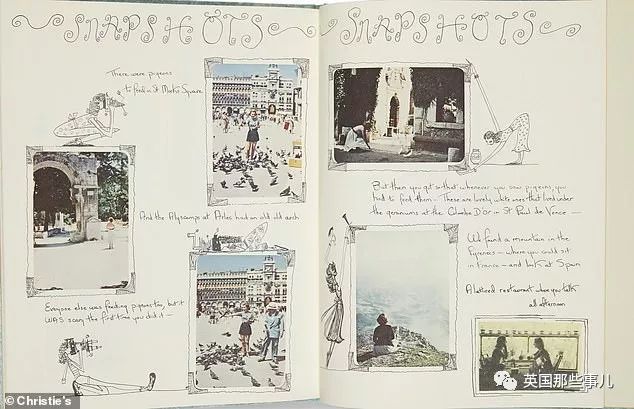 SNAPSHOTS
SNAPSHOTS
There were pigeons
to feed in St Mark's Square
And the Alyscamps at Arles had an old old arch
Everyone else was feeding pigeons too, but it
WAS scary the first time you did it –
But then you got so that whenever you saw pigeons, you
had to feed them – These are lovely white ones that lived under
the geraniums at the Colombe D'Or in St Paul de Vence –
We found a mountain in the
Pyrenees – where you could sit
in France – and look at Spain
A latticed restaurant where you talk
all afternoon
© Christie's
英国那些事儿